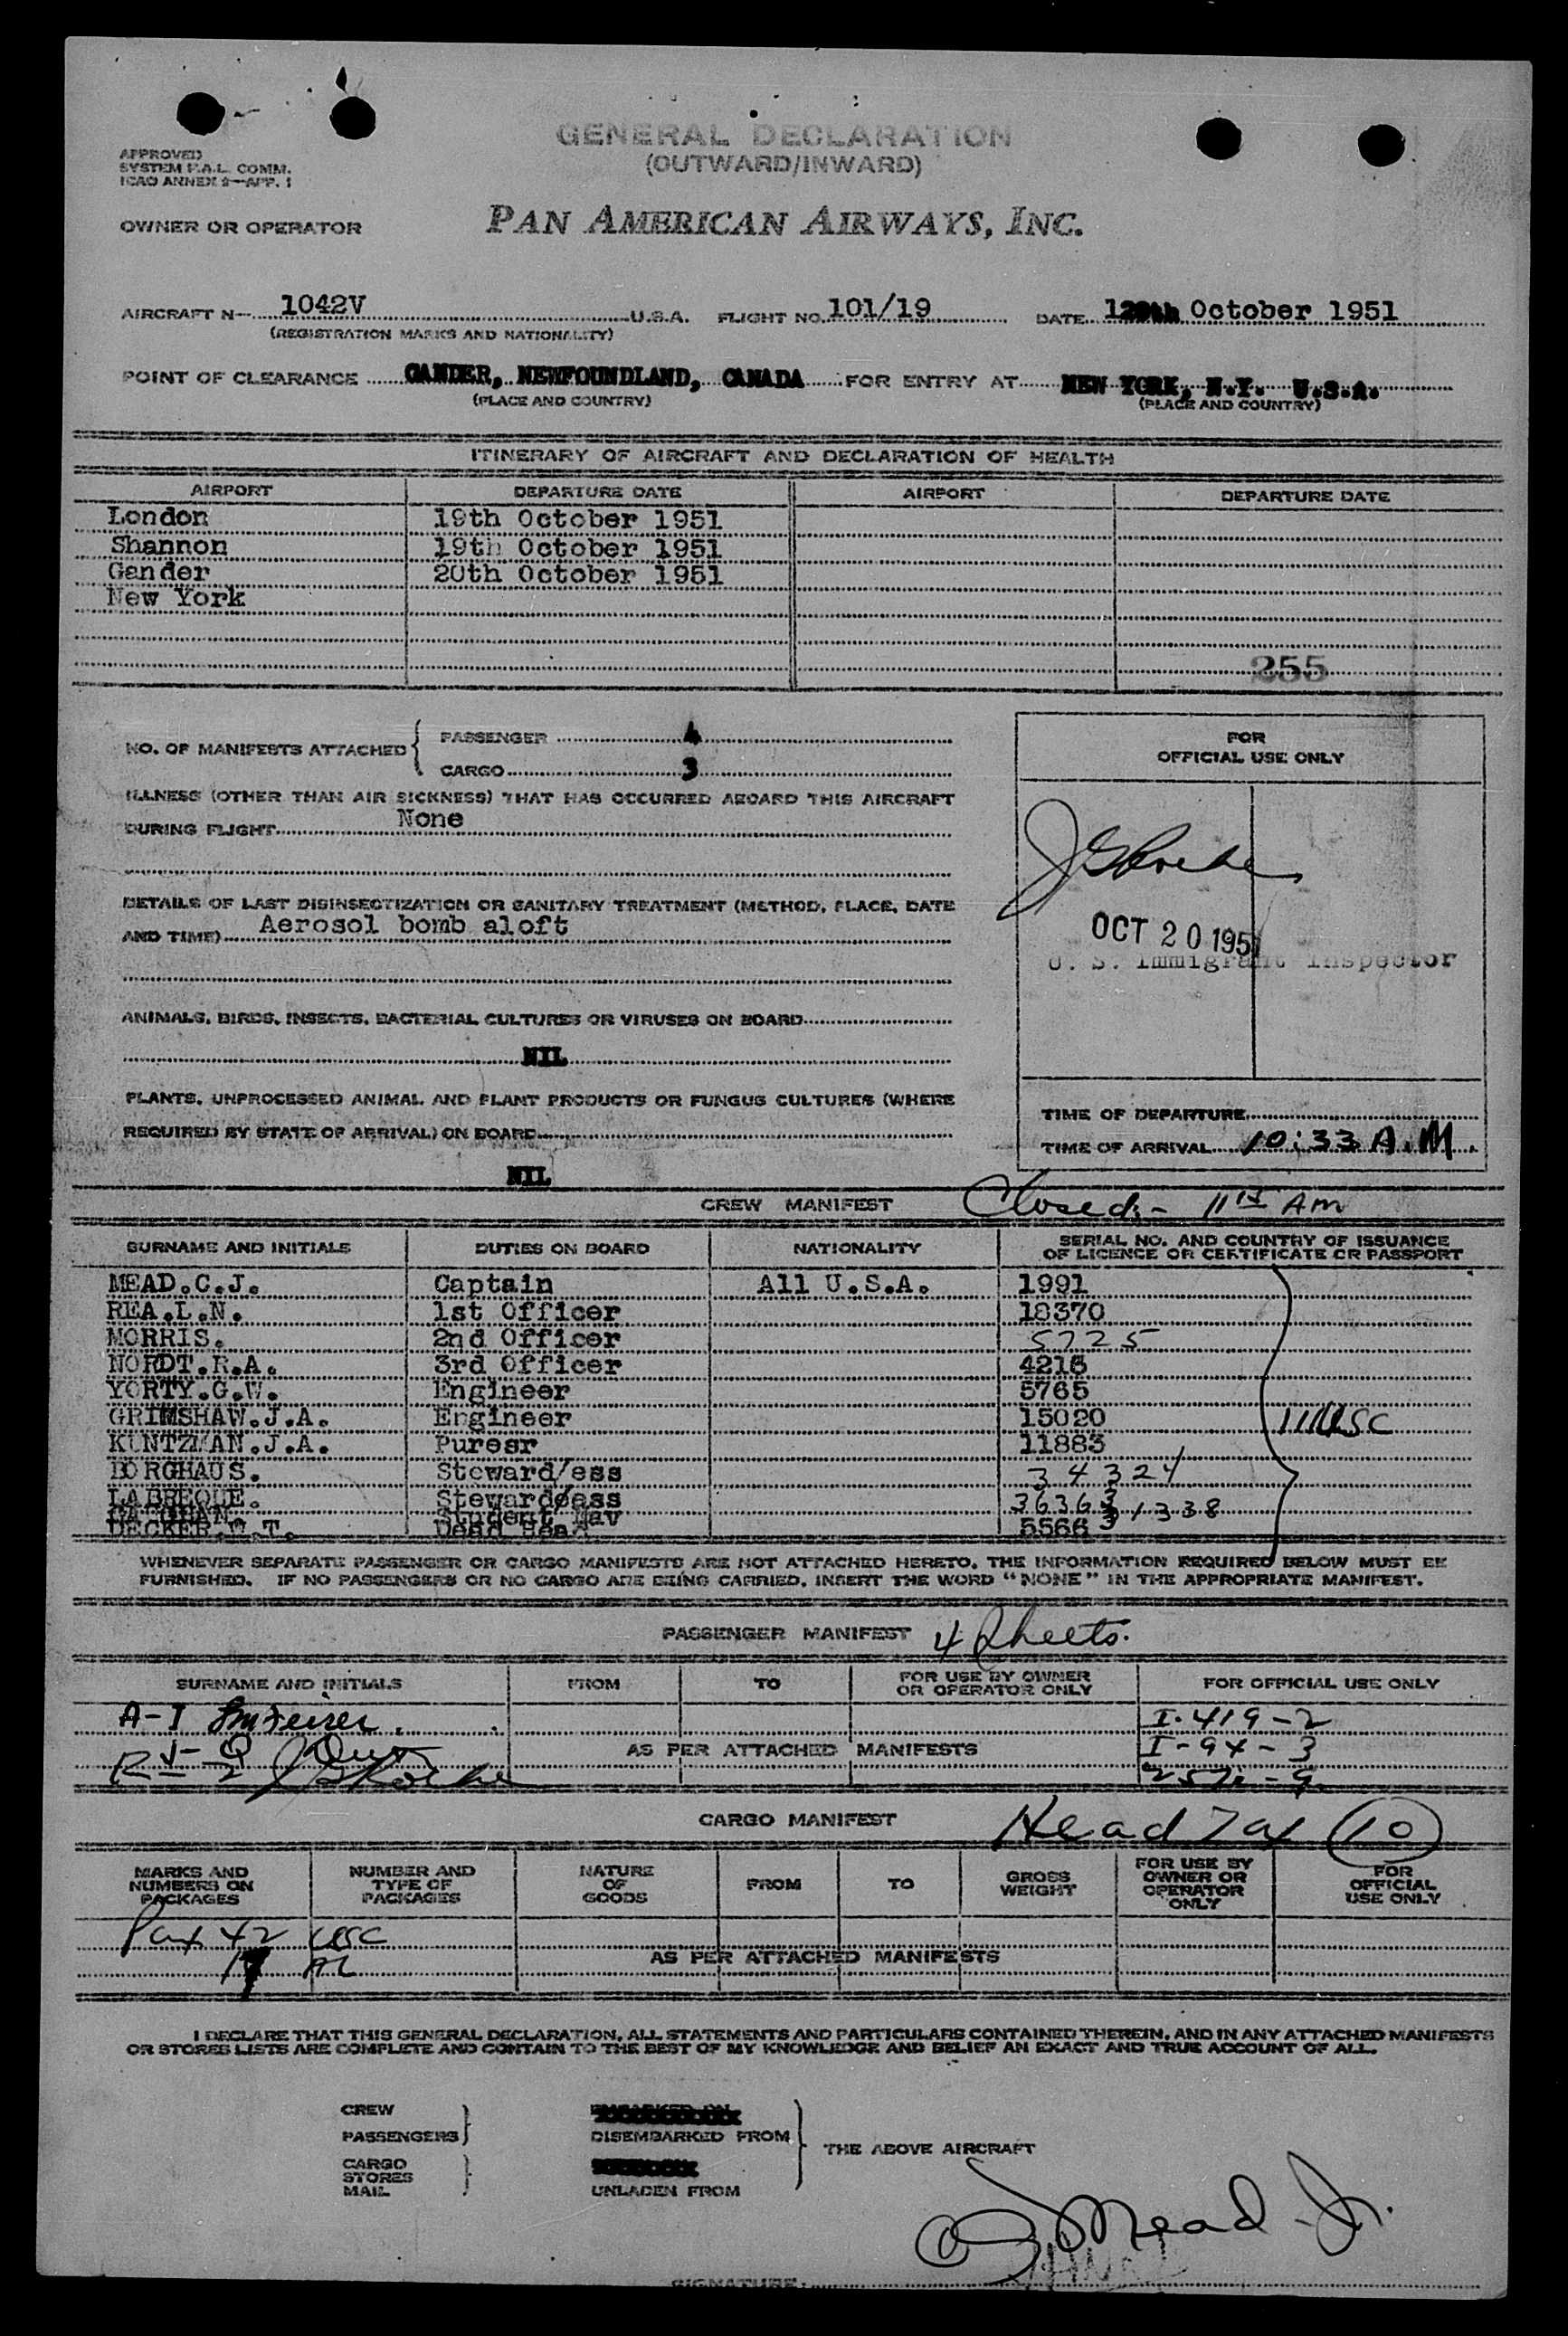 GENERAL DECLARATION
(OUTWARD/INWARD)
APPROVED
SYSTEM F.A.L. COMM.
ICAO ANNEX 9—APP. 1
OWNER OR OPERATOR PAN AMERICAN AIRWAYS, INC.
AIRCRAFT N— 1042V U.S.A. FLIGHT NO. 101/19 DATE October 1951
(REGISTRATION MARKS AND NATIONALITY)
POINT OF CLEARANCE GANDER, NEWFOUNDLAND, CANADA FOR ENTRY AT NEW YORK, N.Y. U.S.A.
(PLACE AND COUNTRY) (PLACE AND COUNTRY)
ITINERARY OF AIRCRAFT AND DECLARATION OF HEALTH
AIRPORT DEPARTURE DATE AIRPORT DEPARTURE DATE
London 19th October 1951
Shannon 19th October 1951
Gander 20th October 1951
New York
255
NO. OF MANIFESTS ATTACHED PASSENGER 4
CARGO 3
FOR
OFFICIAL USE ONLY
ILLNESS (OTHER THAN AIR SICKNESS) THAT HAS OCCURRED ABOARD THIS AIRCRAFT
DURING FLIGHT None
DETAILS OF LAST DISINSECTIZATION OR SANITARY TREATMENT (METHOD, PLACE, DATE
AND TIME) Aerosol bomb aloft
OCT 20 1951
U. S. Immigrant Inspector
ANIMALS, BIRDS, INSECTS, BACTERIAL CULTURES OR VIRUSES ON BOARD
NIL
PLANTS, UNPROCESSED ANIMAL AND PLANT PRODUCTS OR FUNGUS CULTURES (WHERE
REQUIRED BY STATE OF ARRIVAL) ON BOARD
NIL
TIME OF DEPARTURE
TIME OF ARRIVAL 10:33 A.M.
CREW MANIFEST Closed - AM
SURNAME AND INITIALS DUTIES ON BOARD NATIONALITY SERIAL NO. AND COUNTRY OF ISSUANCE
OF LICENCE OR CERTIFICATE OR PASSPORT
MEAD.C.J. Captain All U.S.A. 1991
REA.L.N. 1st Officer 18370
MORRIS. 2nd Officer 5725
NORDT.R.A. 3rd Officer 4216
YORTY.G.W. Engineer 5765
GRIMSHAW.J.A. Engineer 15020 11 USC
KUNTZMAN.J.A. Puresr 11883
BORGHAUS. Steward/ess 34324
LABREQUE. Steward/ess 36363
Student Nav 31338
DECKER. .T. Dead Head 5566
WHENEVER SEPARATE PASSENGER OR CARGO MANIFESTS ARE NOT ATTACHED HERETO, THE INFORMATION REQUIRED BELOW MUST BE
FURNISHED. IF NO PASSENGERS OR NO CARGO ARE BEING CARRIED, INSERT THE WORD "NONE" IN THE APPROPRIATE MANIFEST.
PASSENGER MANIFEST 4 Sheets.
SURNAME AND INITIALS FROM TO FOR USE BY OWNER
OR OPERATOR ONLY FOR OFFICIAL USE ONLY
A-I I-419-2
AS PER ATTACHED MANIFESTS I-94-3
CARGO MANIFEST Head Tax 10
MARKS AND
NUMBERS ON
PACKAGES NUMBER AND
TYPE OF
PACKAGES NATURE
OF
GOODS FROM TO GROSS
WEIGHT FOR USE BY
OWNER OR
OPERATOR
ONLY FOR
OFFICIAL
USE ONLY
Pax 42 USC
AL
AS PER ATTACHED MANIFESTS
I DECLARE THAT THIS GENERAL DECLARATION, ALL STATEMENTS AND PARTICULARS CONTAINED THEREIN, AND IN ANY ATTACHED MANIFESTS
OR STORES LISTS ARE COMPLETE AND CONTAIN TO THE BEST OF MY KNOWLEDGE AND BELIEF AN EXACT AND TRUE ACCOUNT OF ALL.
CREW
PASSENGERS DISEMBARKED FROM THE ABOVE AIRCRAFT
CARGO
STORES
MAIL UNLADEN FROM
CJ Mead Jr.
SIGNATURE